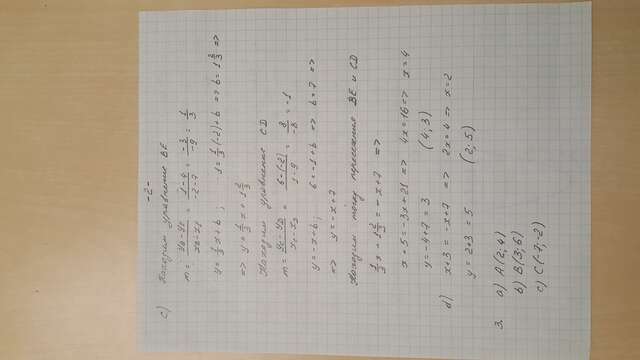 -2-
c) Находим уравнение BE
m = (y₂-y₁)/(x₂-x₁) = (1-4)/(-2-7) = -3/-9 = 1/3
y = 1/3 x + b; 1 = 1/3 (-2) + b => b = 1 2/3 =>
=> y = 1/3 x + 1 2/3
Находим уравнение CD
m = (y₂-y₂)/(x₂-x₂) = (6-(-2))/(1-9) = 8/-8 = -1
y = -x + b; 6 = -1 + b => b = 7 =>
=> y = -x + 7
Находим точку пересечения BE и CD
1/3 x + 1 2/3 = -x + 7 =>
x + 5 = -3x + 21 => 4x = 16 => x = 4
y = -4 + 7 = 3 (4; 3)
d) x + 3 = -x + 7 => 2x = 4 => x = 2
y = 2 + 3 = 5 (2; 5)
3. a) A(2; 4)
b) B(3; 6)
c) C(-7; -2)